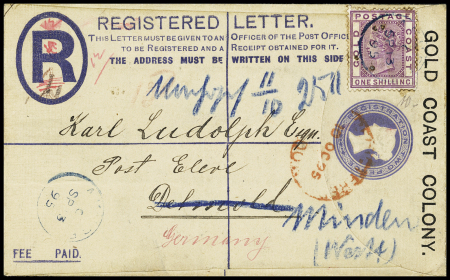 REGISTERED LETTER.
THIS LETTER MUST BE GIVEN TO AN OFFICER OF THE POST OFFICE
TO BE REGISTERED AND A RECEIPT OBTAINED FOR IT.
THE ADDRESS MUST BE WRITTEN ON THIS SIDE
R
POSTAGE
GOLD COAST
ONE SHILLING
GOLD COAST COLONY.
REGISTRATION TWO PENCE
11/10
251
Karl Ludolph Esqr.
Post Eleve
Detmold
Minden
(Westf)
Germany
OC 95
FEE PAID.